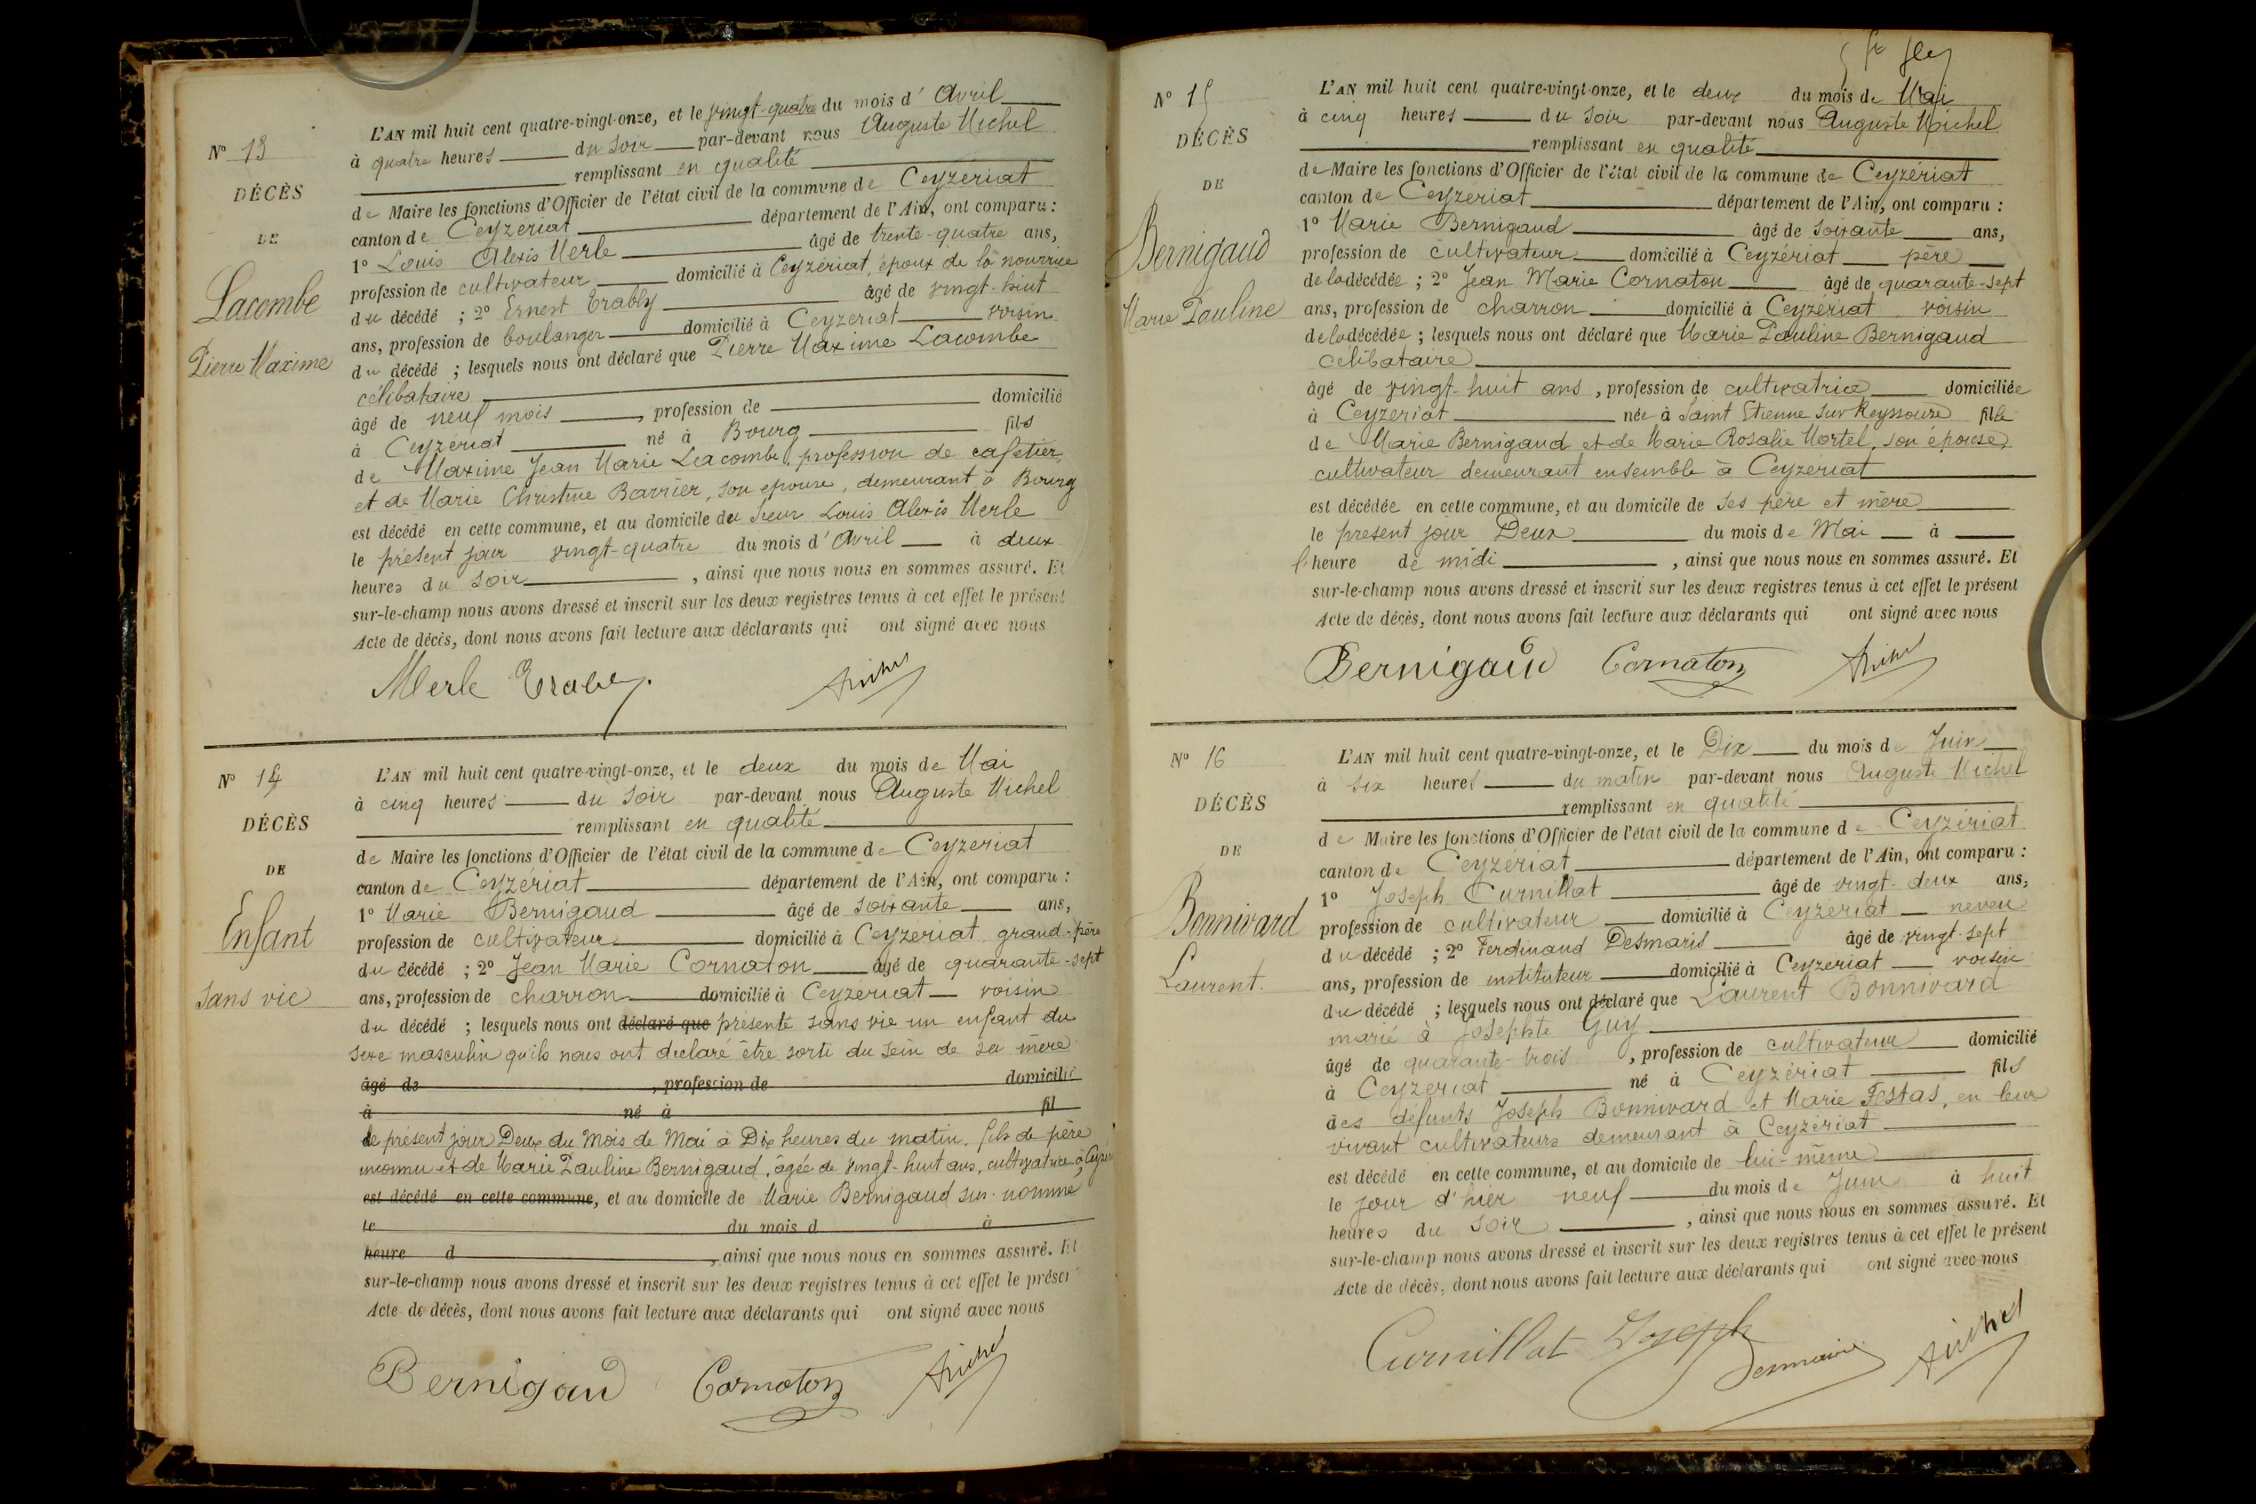 Nº 13
DÉCÈS
DE
Lacombe
Pierre Maxime
L'AN mil huit cent quatre-vingt-onze, et le vingt-quatre du mois d' Avril
à quatre heures du soir par-devant nous Auguste Michel
remplissant en qualité
de Maire les fonctions d'Officier de l'état civil de la commune de Ceyzériat
canton de Ceyzériat département de l'Ain, ont comparu :
1º Louis Alexis Merle âgé de trente-quatre ans,
profession de cultivateur domicilié à Ceyzériat, époux de la nourrice
du décédé ; 2º Ernest Trably âgé de vingt-huit
ans, profession de boulanger domicilié à Ceyzériat voisin
du décédé ; lesquels nous ont déclaré que Pierre Maxime Lacombe
célibataire
âgé de neuf mois , profession de domicilié
à Ceyzériat né à Bourg fils
de Maxime Jean Marie Lacombe, profession de cafetier,
et de Marie Christine Barrier, son épouse, demeurant à Bourg
est décédé en cette commune, et au domicile du sieur Louis Alexis Merle
le présent jour vingt-quatre du mois d' Avril à deux
heures du soir , ainsi que nous nous en sommes assuré. Et
sur-le-champ nous avons dressé et inscrit sur les deux registres tenus à cet effet le présent
Acte de décès, dont nous avons fait lecture aux déclarants qui ont signé avec nous
Merle Trably Michel
Nº 14
DÉCÈS
DE
Enfant
sans vie
L'AN mil huit cent quatre-vingt-onze, et le deux du mois de Mai
à cinq heures du soir par-devant nous Auguste Michel
remplissant en qualité
de Maire les fonctions d'Officier de l'état civil de la commune de Ceyzériat
canton de Ceyzériat département de l'Ain, ont comparu :
1º Marie Bernigaud âgé de soixante ans,
profession de cultivateur domicilié à Ceyzériat grand-père
du décédé ; 2º Jean Marie Cornaton âgé de quarante-sept
ans, profession de charron domicilié à Ceyzériat voisin
du décédé ; lesquels nous ont déclaré que présenté sans vie un enfant du
sexe masculin qu'ils nous ont déclaré être sorti du sein de sa mère
âgé de , profession de domicilié
à né à fil
le présent jour Deux du mois de Mai à Dix heures du matin. fils de père
inconnu et de Marie Pauline Bernigaud, âgée de vingt-huit ans, cultivatrice à Ceyzé
est décédé en cette commune, et au domicile de Marie Bernigaud sus-nommé
le du mois d à
heure d , ainsi que nous nous en sommes assuré. Et
sur-le-champ nous avons dressé et inscrit sur les deux registres tenus à cet effet le présen
Acte de décès, dont nous avons fait lecture aux déclarants qui ont signé avec nous
Bernigaud Cornaton Michel
Nº 15
DÉCÈS
DE
Bernigaud
Marie Pauline
L'AN mil huit cent quatre-vingt-onze, et le deux du mois de Mai
à cinq heures du soir par-devant nous Auguste Michel
remplissant en qualité
de Maire les fonctions d'Officier de l'état civil de la commune de Ceyzériat
canton de Ceyzériat département de l'Ain, ont comparu :
1º Marie Bernigaud âgé de soixante ans,
profession de cultivateur domicilié à Ceyzériat père
de la décédée ; 2º Jean Marie Cornaton âgé de quarante-sept
ans, profession de charron domicilié à Ceyzériat voisin
de la décédée ; lesquels nous ont déclaré que Marie Pauline Bernigaud
célibataire
âgé de vingt-huit ans , profession de cultivatrice domiciliée
à Ceyzériat née à Saint Etienne sur Reyssouze fille
de Marie Bernigaud et de Marie Rosalie Mortel, son épouse,
cultivateur demeurant ensemble à Ceyzériat
est décédée en cette commune, et au domicile de ses père et mère
le présent jour Deux du mois de Mai à
l'heure de midi , ainsi que nous nous en sommes assuré. Et
sur-le-champ nous avons dressé et inscrit sur les deux registres tenus à cet effet le présent
Acte de décès, dont nous avons fait lecture aux déclarants qui ont signé avec nous
Bernigaud Cornaton Michel
Nº 16
DÉCÈS
DE
Bonnivard
Laurent.
L'AN mil huit cent quatre-vingt-onze, et le Dix du mois de Juin
à six heures du matin par-devant nous Auguste Michel
remplissant en qualité
de Maire les fonctions d'Officier de l'état civil de la commune de Ceyzériat
canton de Ceyzériat département de l'Ain, ont comparu :
1º Joseph Curnillat âgé de vingt-deux ans,
profession de cultivateur domicilié à Ceyzériat neveu
du décédé ; 2º Ferdinand Desmaris âgé de vingt-sept
ans, profession de instituteur domicilié à Ceyzériat voisin
du décédé ; lesquels nous ont déclaré que Laurent Bonnivard
marié à Josephte Guy
âgé de quarante-trois , profession de cultivateur domicilié
à Ceyzériat né à Ceyzériat fils
des défunts Joseph Bonnivard et Marie Festas, en leur
vivant cultivateurs demeurant à Ceyzériat
est décédé en cette commune, et au domicile de lui-même
le jour d'hier neuf du mois de Juin à huit
heures du soir , ainsi que nous nous en sommes assuré. Et
sur-le-champ nous avons dressé et inscrit sur les deux registres tenus à cet effet le présent
Acte de décès, dont nous avons fait lecture aux déclarants qui ont signé avec nous
Curnillat Joseph Desmaris Michel